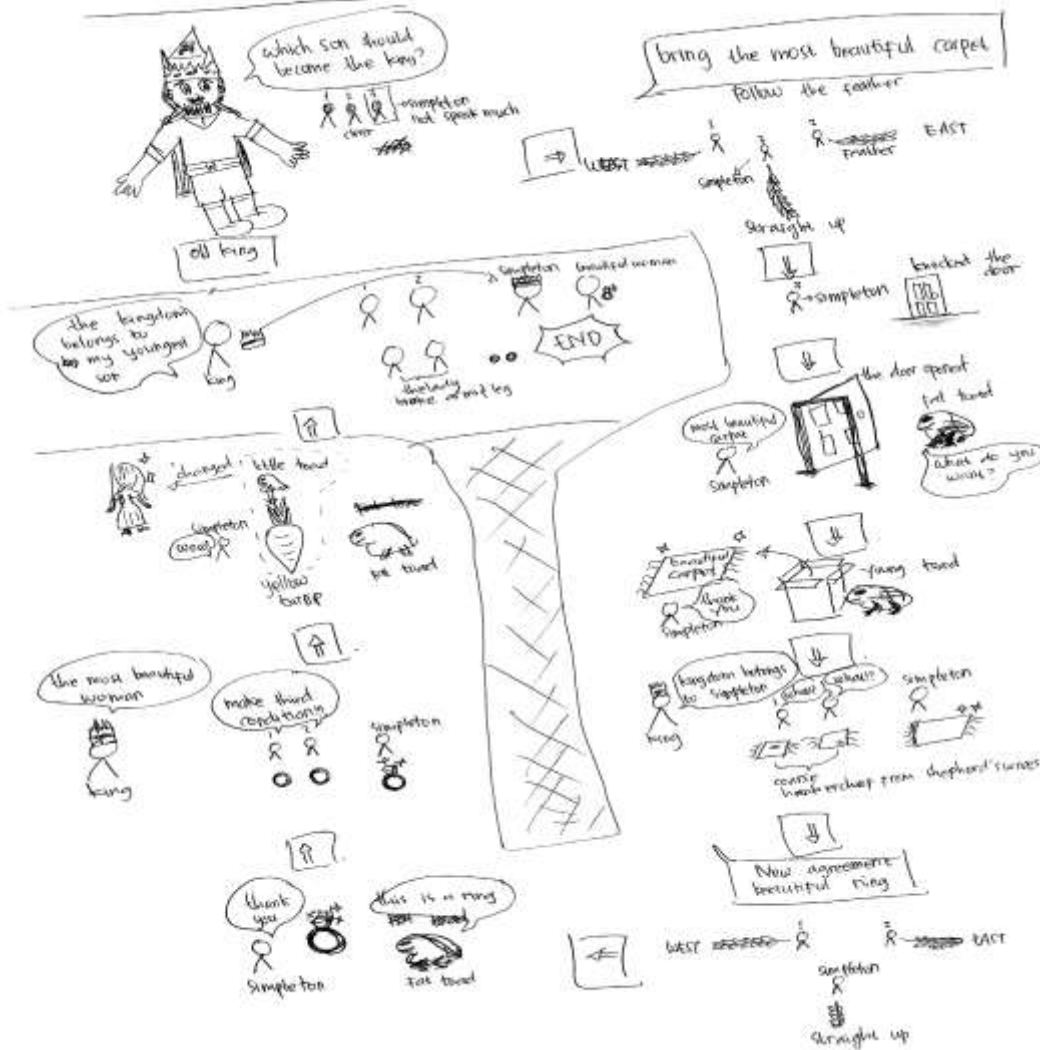 which son should
become the king?
1 2 3
clever
→simpleton
not speak much
old king
bring the most beautiful carpet
Follow the feather
⇒
WEST
1
3
2
EAST
Feather
simpleton
straight up
⇓
3
→simpleton
knocked the
door
⇓
the door opened
most beautiful
carpet
simpleton
fat toad
what do you
want?
⇓
beautiful
carpet
thank
you
simpleton
young toad
⇓
kingdom belongs
to simpleton
king
what?
what!?
1
2
simpleton
coarse
handkerchief from shepherd's wives
⇓
New agreement
beautiful ring
⇐
WEST
1
2
EAST
simpleton
straight up
thank
you
simpleton
this is a ring
fat toad
⇑
the most beautiful
woman
king
make third
condition!!
1 2
simpleton
⇑
changed
little toad
simpleton
yellow
fat toad
⇑
the kingdom
belongs to
my youngest
son
king
1
2
3
simpleton
beautiful woman
the lady
END